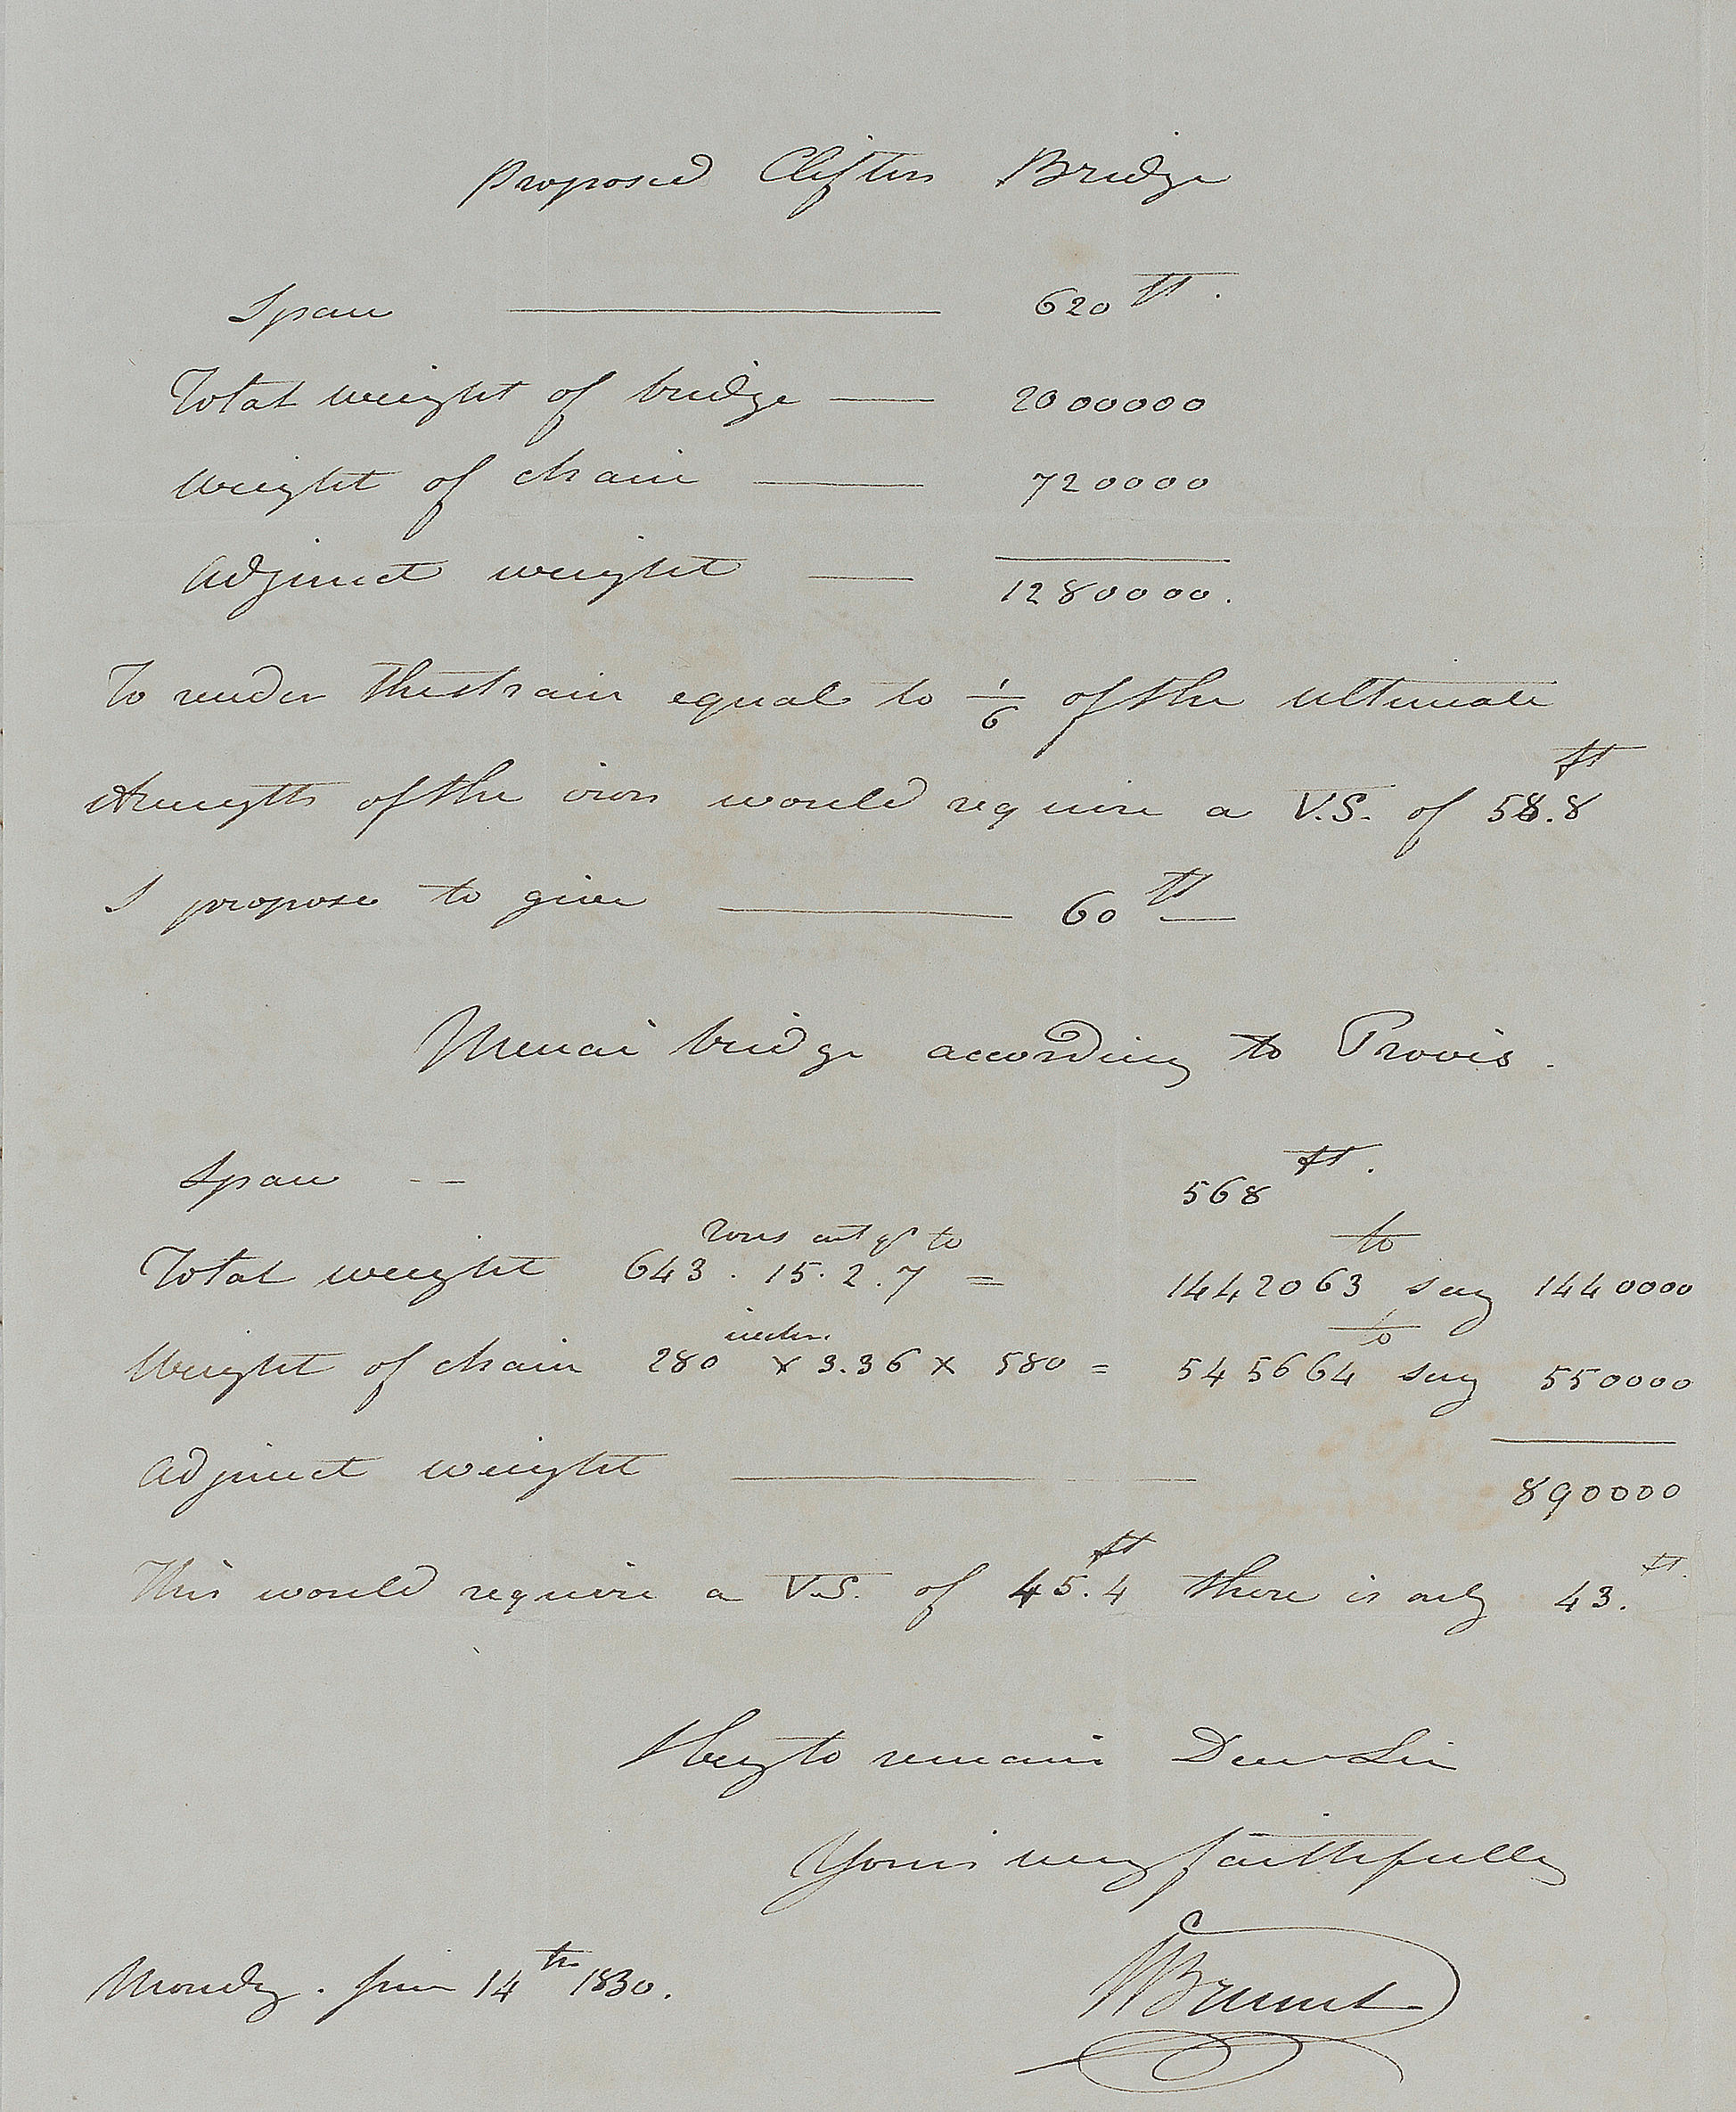 Proposed Clifton Bridge
Span — 620 ft.
Total weight of bridge — 2000000
Weight of chain — 720000
Adjunct weight — 1280000.
To render the strain equal to 1/6 of the ultimate
strength of the iron would require a V.S. of 58.8 ft
I propose to give — 60 ft —
Menai bridge according to Provis.
Span -- 568 ft.
tons cwt qr lb lb
Total weight 643 . 15 . 2 . 7 = 1442063 say 1440000
inches lb
Weight of chain 280 x 3.36 x 580 = 545664 say 550000
Adjunct weight — 890000
This would require a V.S. of 45.4 ft there is only 43. ft.
I beg to remain Dear Sir
Yours very faithfully
Monday. June 14th 1830.
I Brunel